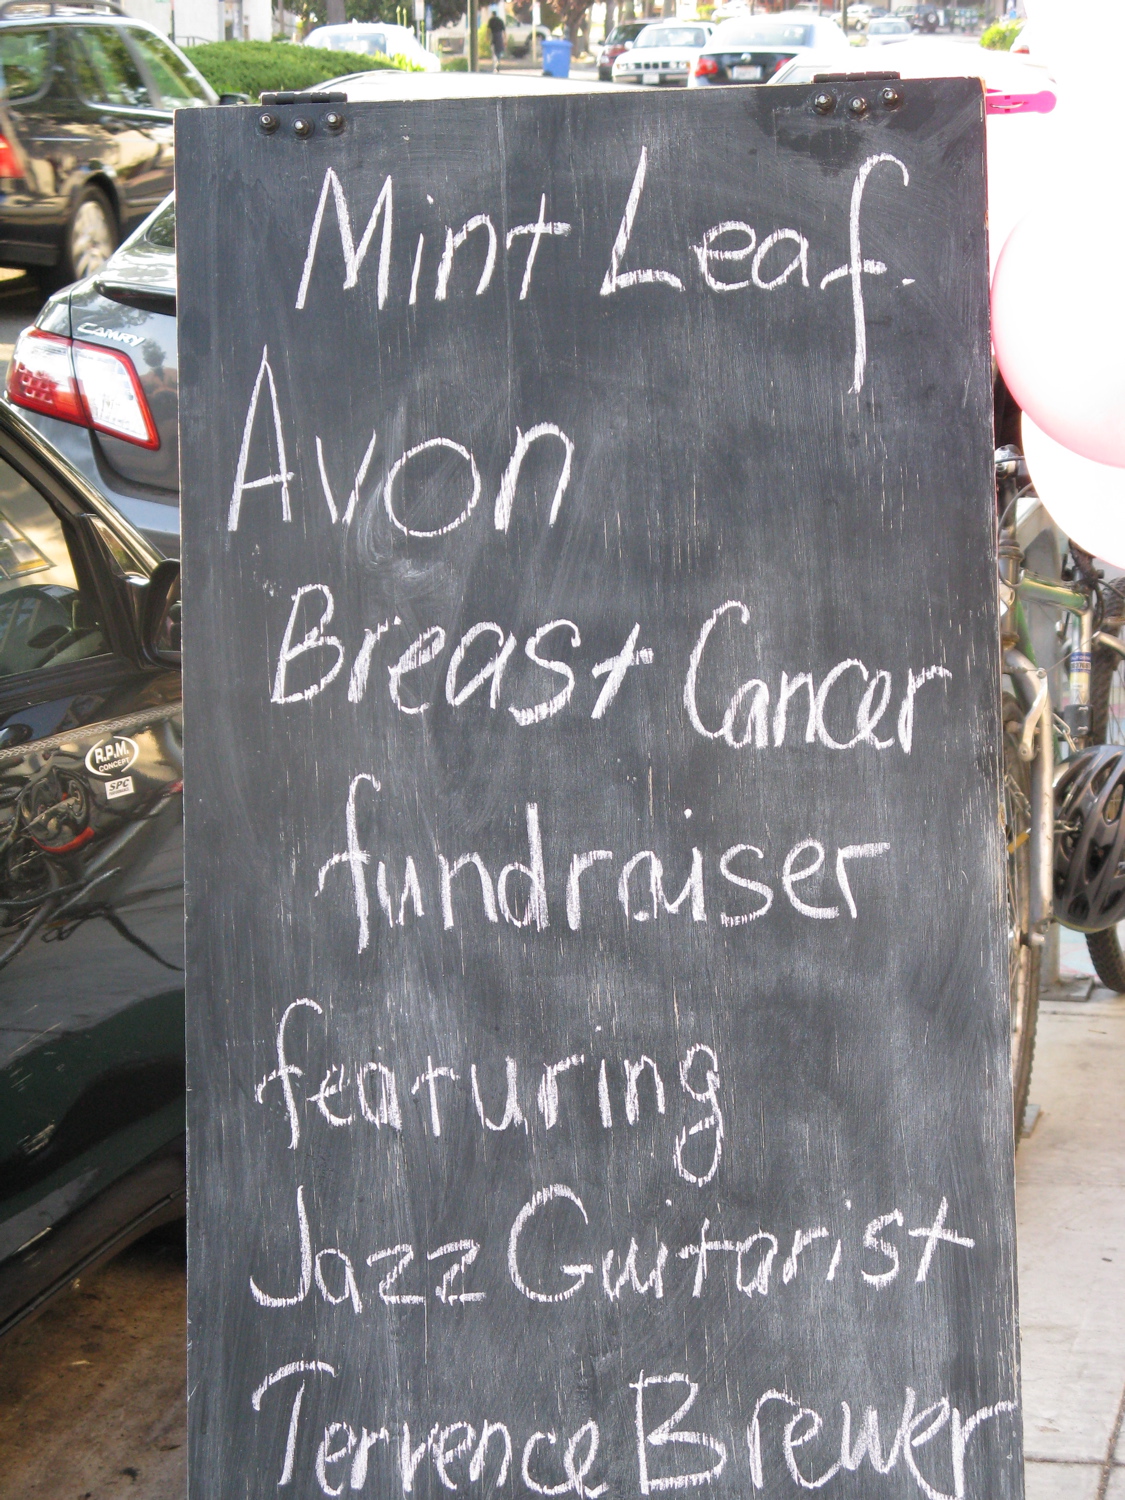 Mint Leaf.
Avon
Breast Cancer
fundraiser
featuring
Jazz Guitarist
Terrence Brewer
CAMRY
R.P.M.
CONCEPT
SPC